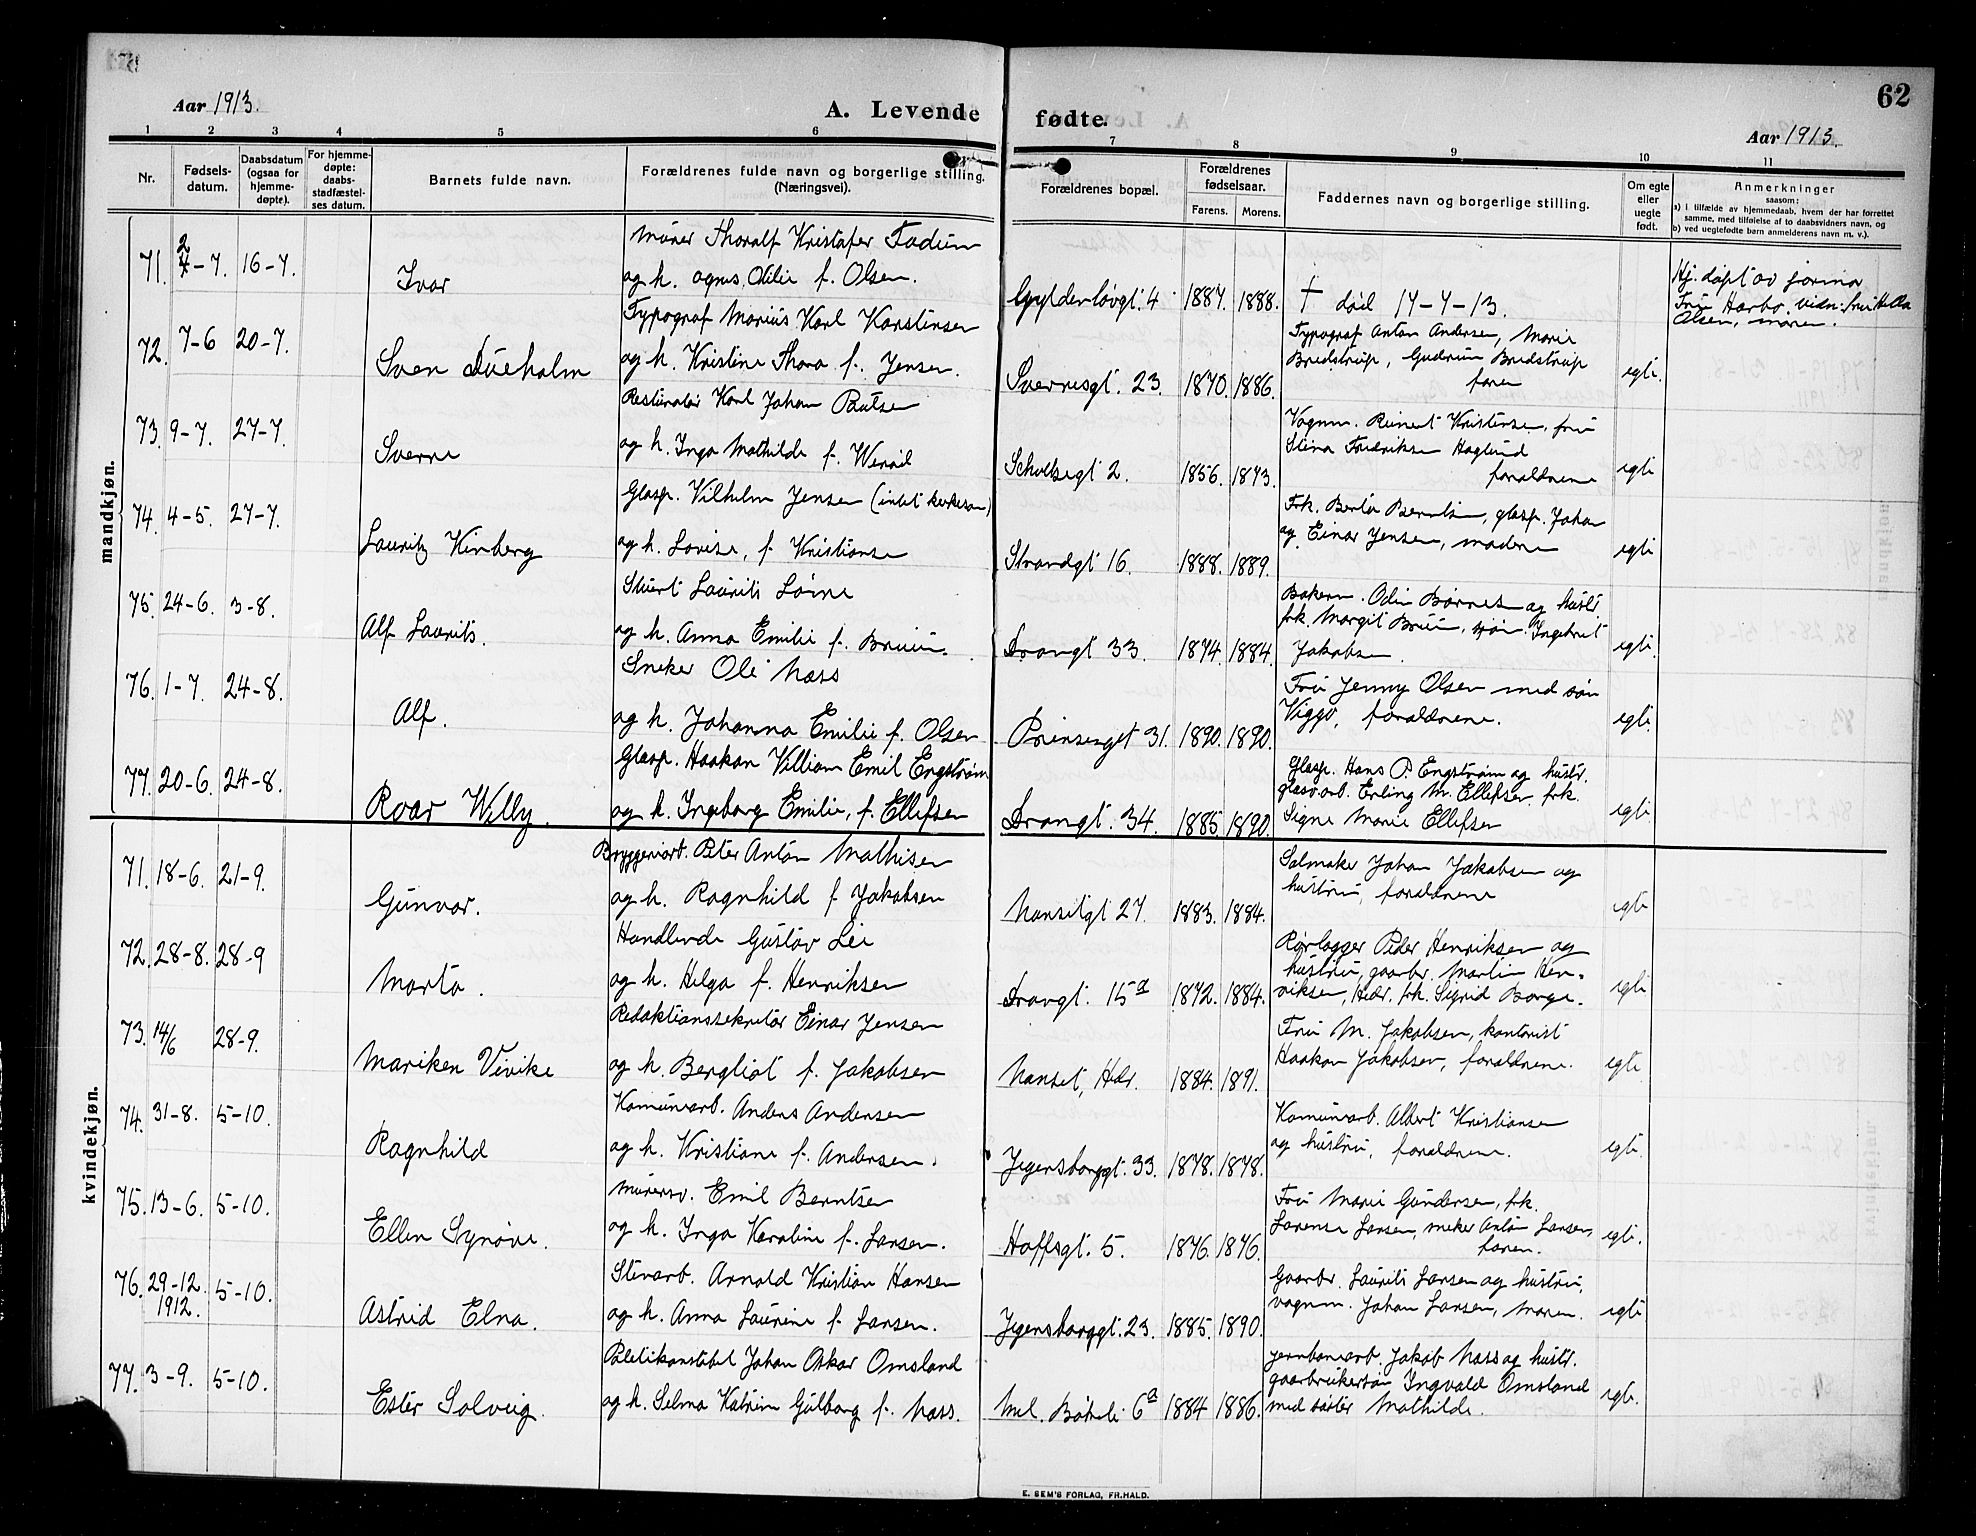 62
Aar 1913.
A. Levende fødte.
Aar 1913.
1 2 3 4 5 6 7 8 9 10 11
Nr.
Fødsels-
datum.
Daabsdatum
(ogsaa for
hjemme-
døpte).
For hjemme-
døpte:
daabs-
stadfæstel-
ses datum.
Barnets fulde navn.
Forældrenes fulde navn og borgerlige stilling.
(Næringsvei).
Forældrenes bopæl.
Forældrenes
fødselsaar.
Farens. Morens.
Faddernes navn og borgerlige stilling.
Om egte
eller
uegte
født.
Anmerkninger
saasom:
a) i tilfælde av hjemmedaab, hvem der har forrettet
samme, med tilføielse af to daabsvidners navn, og
b) ved uegtefødte barn anmelderens navn m. v.).
mandkjøn.
71. 2-7. 16-7.
Ivar
Murer Thoralf Kristofer Fadum
og h. Agnes Otilie f. Olsen.
Gyldenløvgt. 4 1887. 1888.
† død 17-7-13.
Hj. døpt av jormor
Fru Harbo. vidn: fru Hella
Olsen, moren.
72. 7-6 20-7.
Sven Dueholm
Typograf Marius Karl Karstensen
og h. Kristine Thora f. Jensen.
Sverresgt. 23. 1870. 1886.
Typograf Anton Andersen, Marie
Bredstrup, Gudrun Bredstrup
faren
egte.
73. 9-7. 27-7.
Sverre
Restauratør Karl Johan Paulsen
og h. Inga Mathilde f.
Schultzegt 2. 1856. 1873.
Vognm. Reinert Kristensen, fru
Stina Fredriksen Haglund
forældrene
egte
74. 4-5. 27-7.
Lauritz Kinberg
Glasp. Vilhelm Jensen (intet kirkesam)
og h. Lovise, f. Kristiansen
Strandgt 16. 1888. 1889.
Frk. Berta Berntsen, glasp. Johan
og Einar Jensen, moderen
egte
75. 24-6. 3-8.
Alf Laurits.
Stuert Laurits Lorne
og h. Anna Emilie f. Bruun.
Drangt 33. 1874. 1884.
Bakerm. Odin Barnes og hustr
frk. Margit Bruun, Ingebret
Jakobsen.
egte.
76. 1-7. 24-8.
Alf.
Sneker Ole Næss
og h. Johanna Emilie f. Olsen
Prinsensgt 31. 1890. 1890.
Fru Jenny Olsen med søn
Viggo, forældrene.
egte.
77. 20-6. 24-8.
Roar Willy.
Glasp. Haakon Villiam Emil Engstrøm
og h. Ingeborg Emilie, f. Ellefsen
Drangt. 34. 1885 1890.
Glasp. Hans P. Engstrøm og hustr.
glasv.arb. Erling M. Ellefsen frk.
Signe Marie Ellefsen
egte
kvindekjøn.
71. 18-6. 21-9.
Gunvor.
Bryggeriarb. Peter Anton Mathisen
og h. Ragnhild f Jakobsen
Nansetgt 27. 1883. 1884.
Salmaker Johan Jakobsen og
hustru, forældrene
egte
72. 28-8. 28-9
Marta.
Handlende Gustav Lie
og h. Helga f. Henriksen
Drangt. 15ª 1872. 1884.
Rørlægger Peder Henriksen og
hustru, gaarbr. Martin Hen-
riksen, Hedr. frk. Sigrid Borge.
egte
73. 14/6 28-9.
Mariken Vivike
Redaktionssekretær Einar Jensen
og h. Bergliot f. Jakobsen
Nanset, Hedr. 1884. 1891.
Fru M. Jakobsen, kontorist
Haakon Jakobsen, forældrene.
egte
74. 31-8. 5-10.
Ragnhild
Komunearb. Anders Andersen
og h. Kristiane f. Andersen.
Jegersborggt. 33. 1878. 1878.
Komunearb. Albert Kristiansen
og hustru, forældrene.
egte.
75. 13-6. 5-10.
Ellen Synøve.
Murersv. Emil Berntsen
og h. Inga Karoline f. Larsen.
Hoffsgt. 5. 1876. 1876.
Fru Marie Gundersen, frk.
Lorense Larsen, sneker Anton Larsen,
faren.
egte.
76. 29-12 1912. 5-10.
Astrid Elna.
Stenarb. Arnold Kristian Hansen
og h. Anna Laurine f. Larsen.
Jegersborggt. 23. 1885. 1890.
Gaarbr. Laurits Larsen og hustru,
vognm. Johan Larsen, moren.
egte
77. 3-9. 5-10.
Ester Solveig.
Politikonstabel Johan Oskar Omsland
og h. Selma Katrine Gulborg f. Næss.
Mel. Bøkeli 6ª 1884 1886.
jernbanearb. Jakob Næss og hustr.
gaarbrukersøn Ingvald Omsland
med søster Mathilde.
egte.
E. SEM'S FORLAG, FR.HALD.